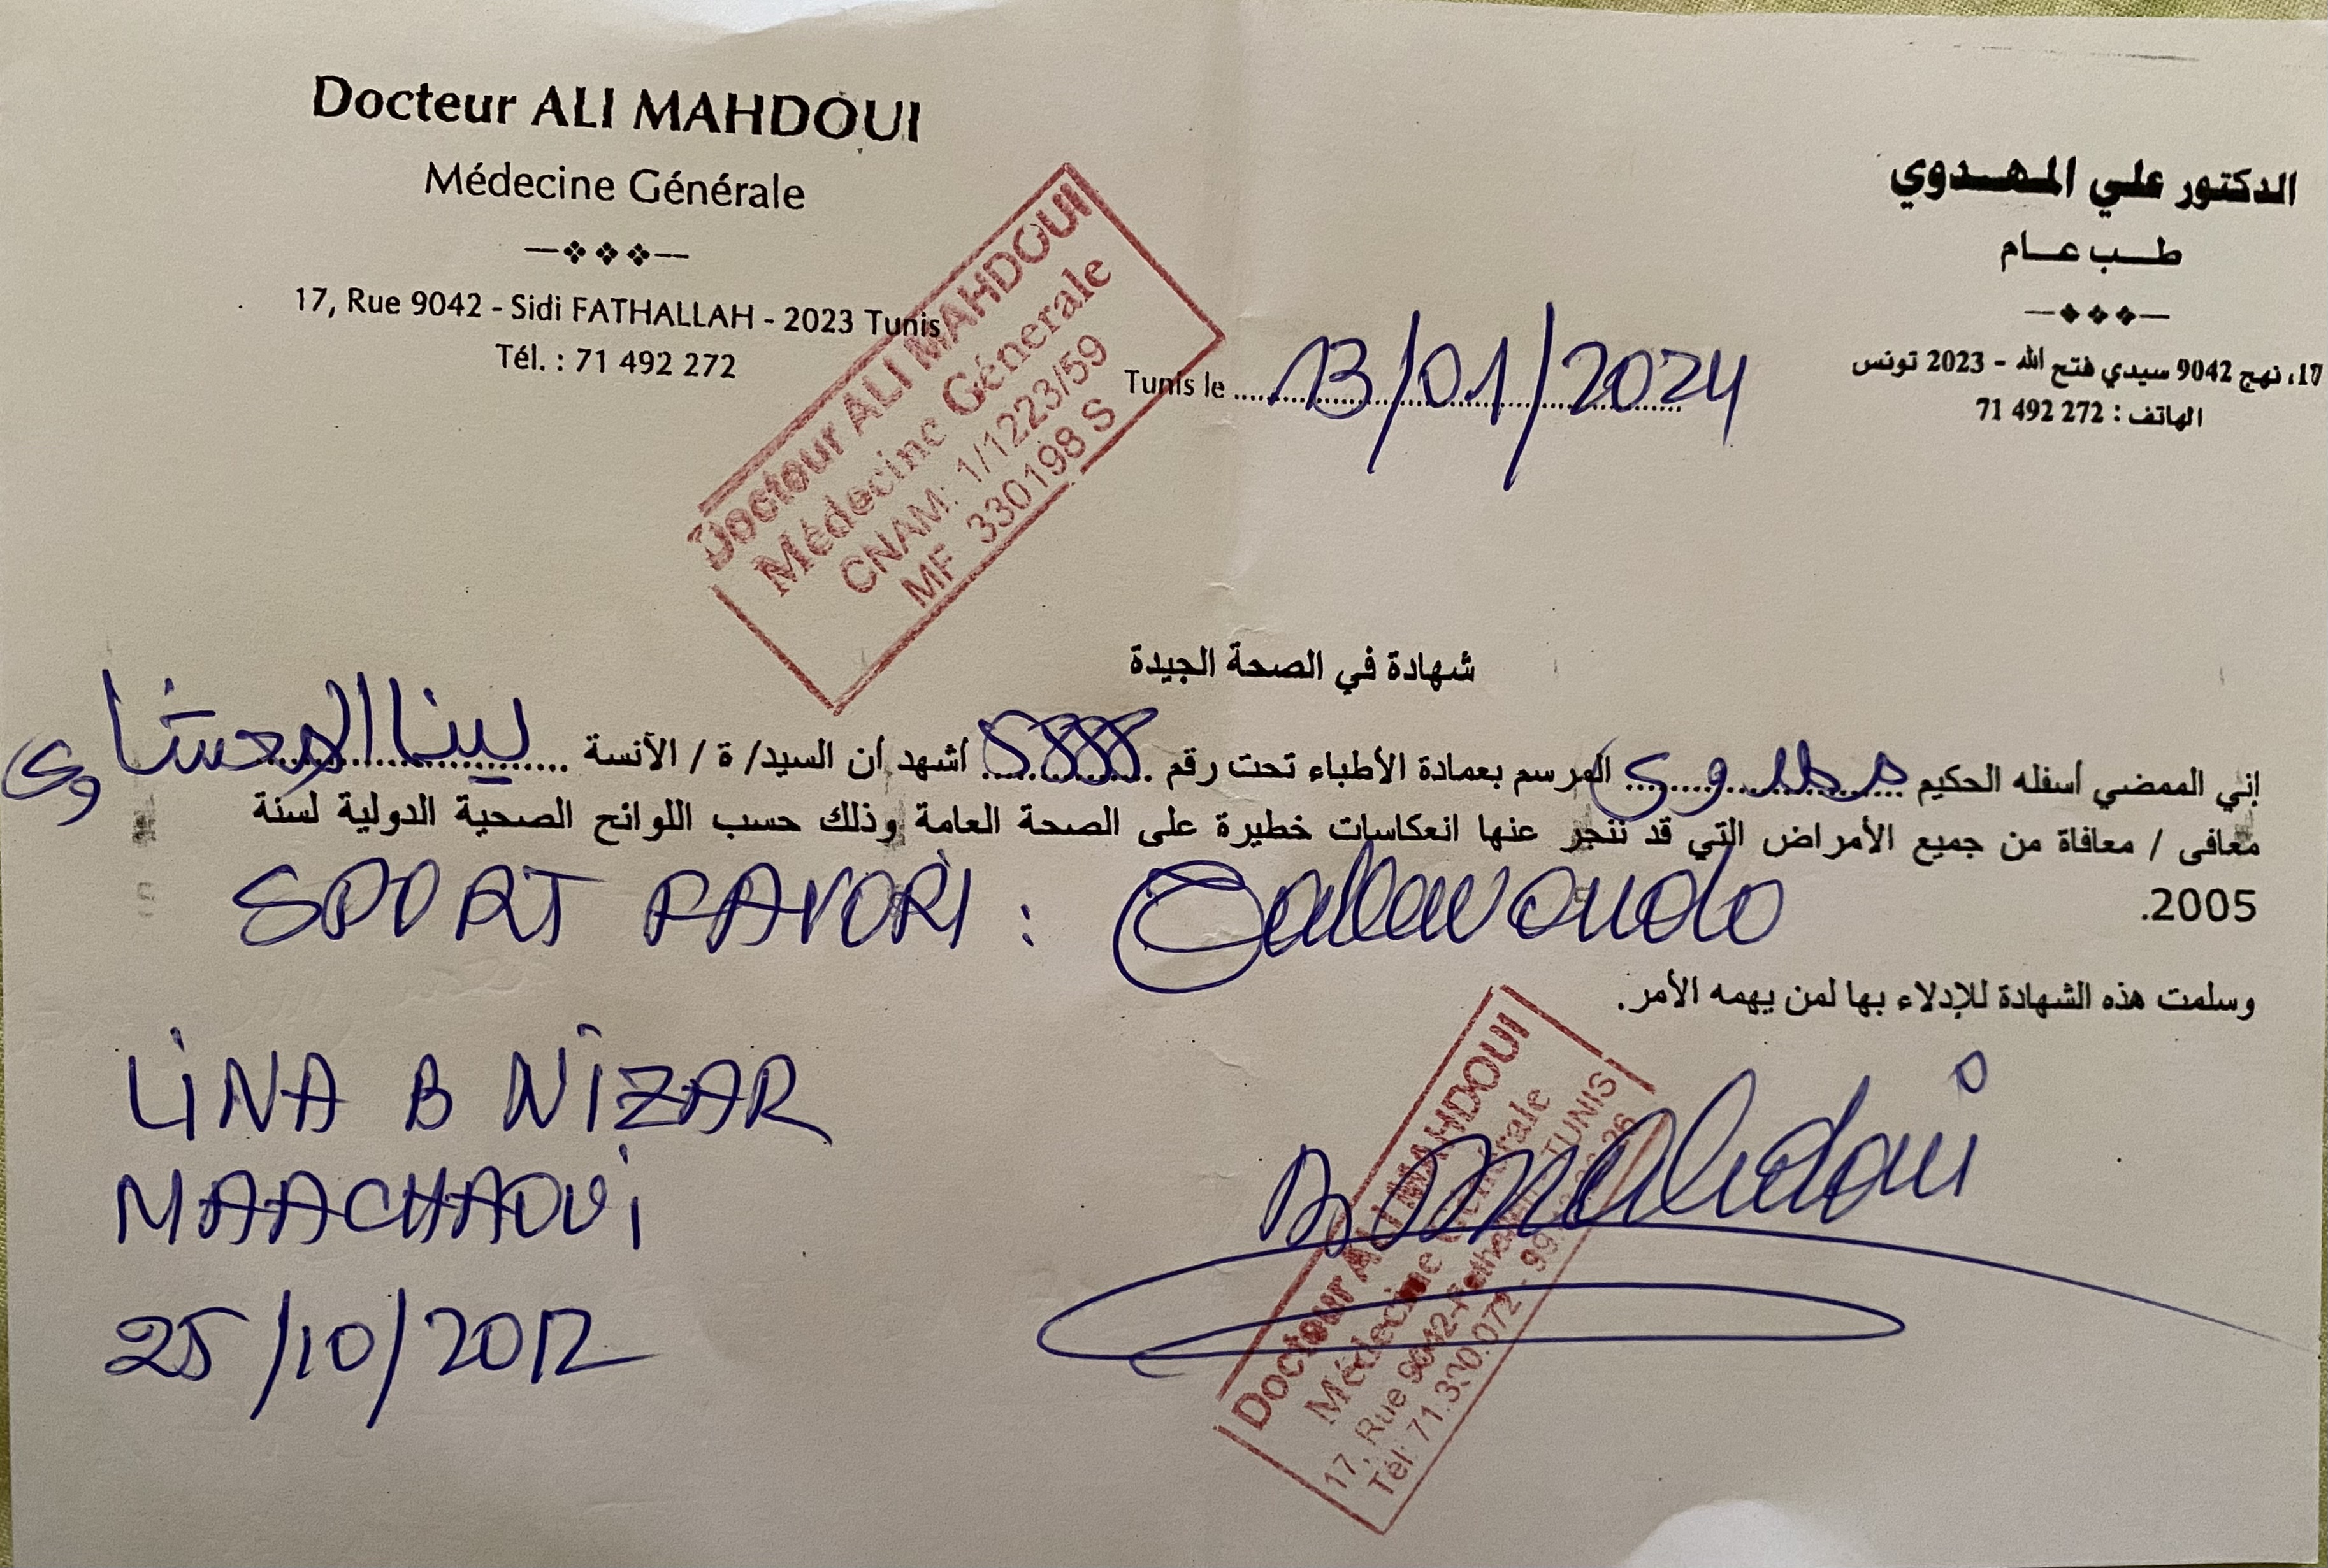 Docteur ALI MAHDOUI
Médecine Générale
17, Rue 9042 - Sidi FATHALLAH - 2023 Tunis
Tél. : 71 492 272
الدكتور علي المهدوي
طب عام
17، نهج 9042 سيدي فتح الله - 2023 تونس
الهاتف : 272 492 71
Docteur ALI MAHDOUI
Médecine Génerale
CNAM: 1/1223/59
MF 330198 S
Tunis le 13/01/2024
شهادة في الصحة الجيدة
إني الممضي أسفله الحكيم مهدوي المرسم بعمادة الأطباء تحت رقم أشهد أن السيد/ ة / الآنسة لينا المعشاوي
معافى / معافاة من جميع الأمراض التي قد تنجر عنها انعكاسات خطيرة على الصحة العامة وذلك حسب اللوائح الصحية الدولية لسنة
2005.
SPORT FAVORI :
وسلمت هذه الشهادة للإدلاء بها لمن يهمه الأمر.
LINA B NIZAR
MAACHAOUI
25/10/2012
Mahdoui
Docteur ALI MAHDOUI
Médecine Générale
17, Rue 9042-Fathallah TUNIS
Tél: 71.390.072